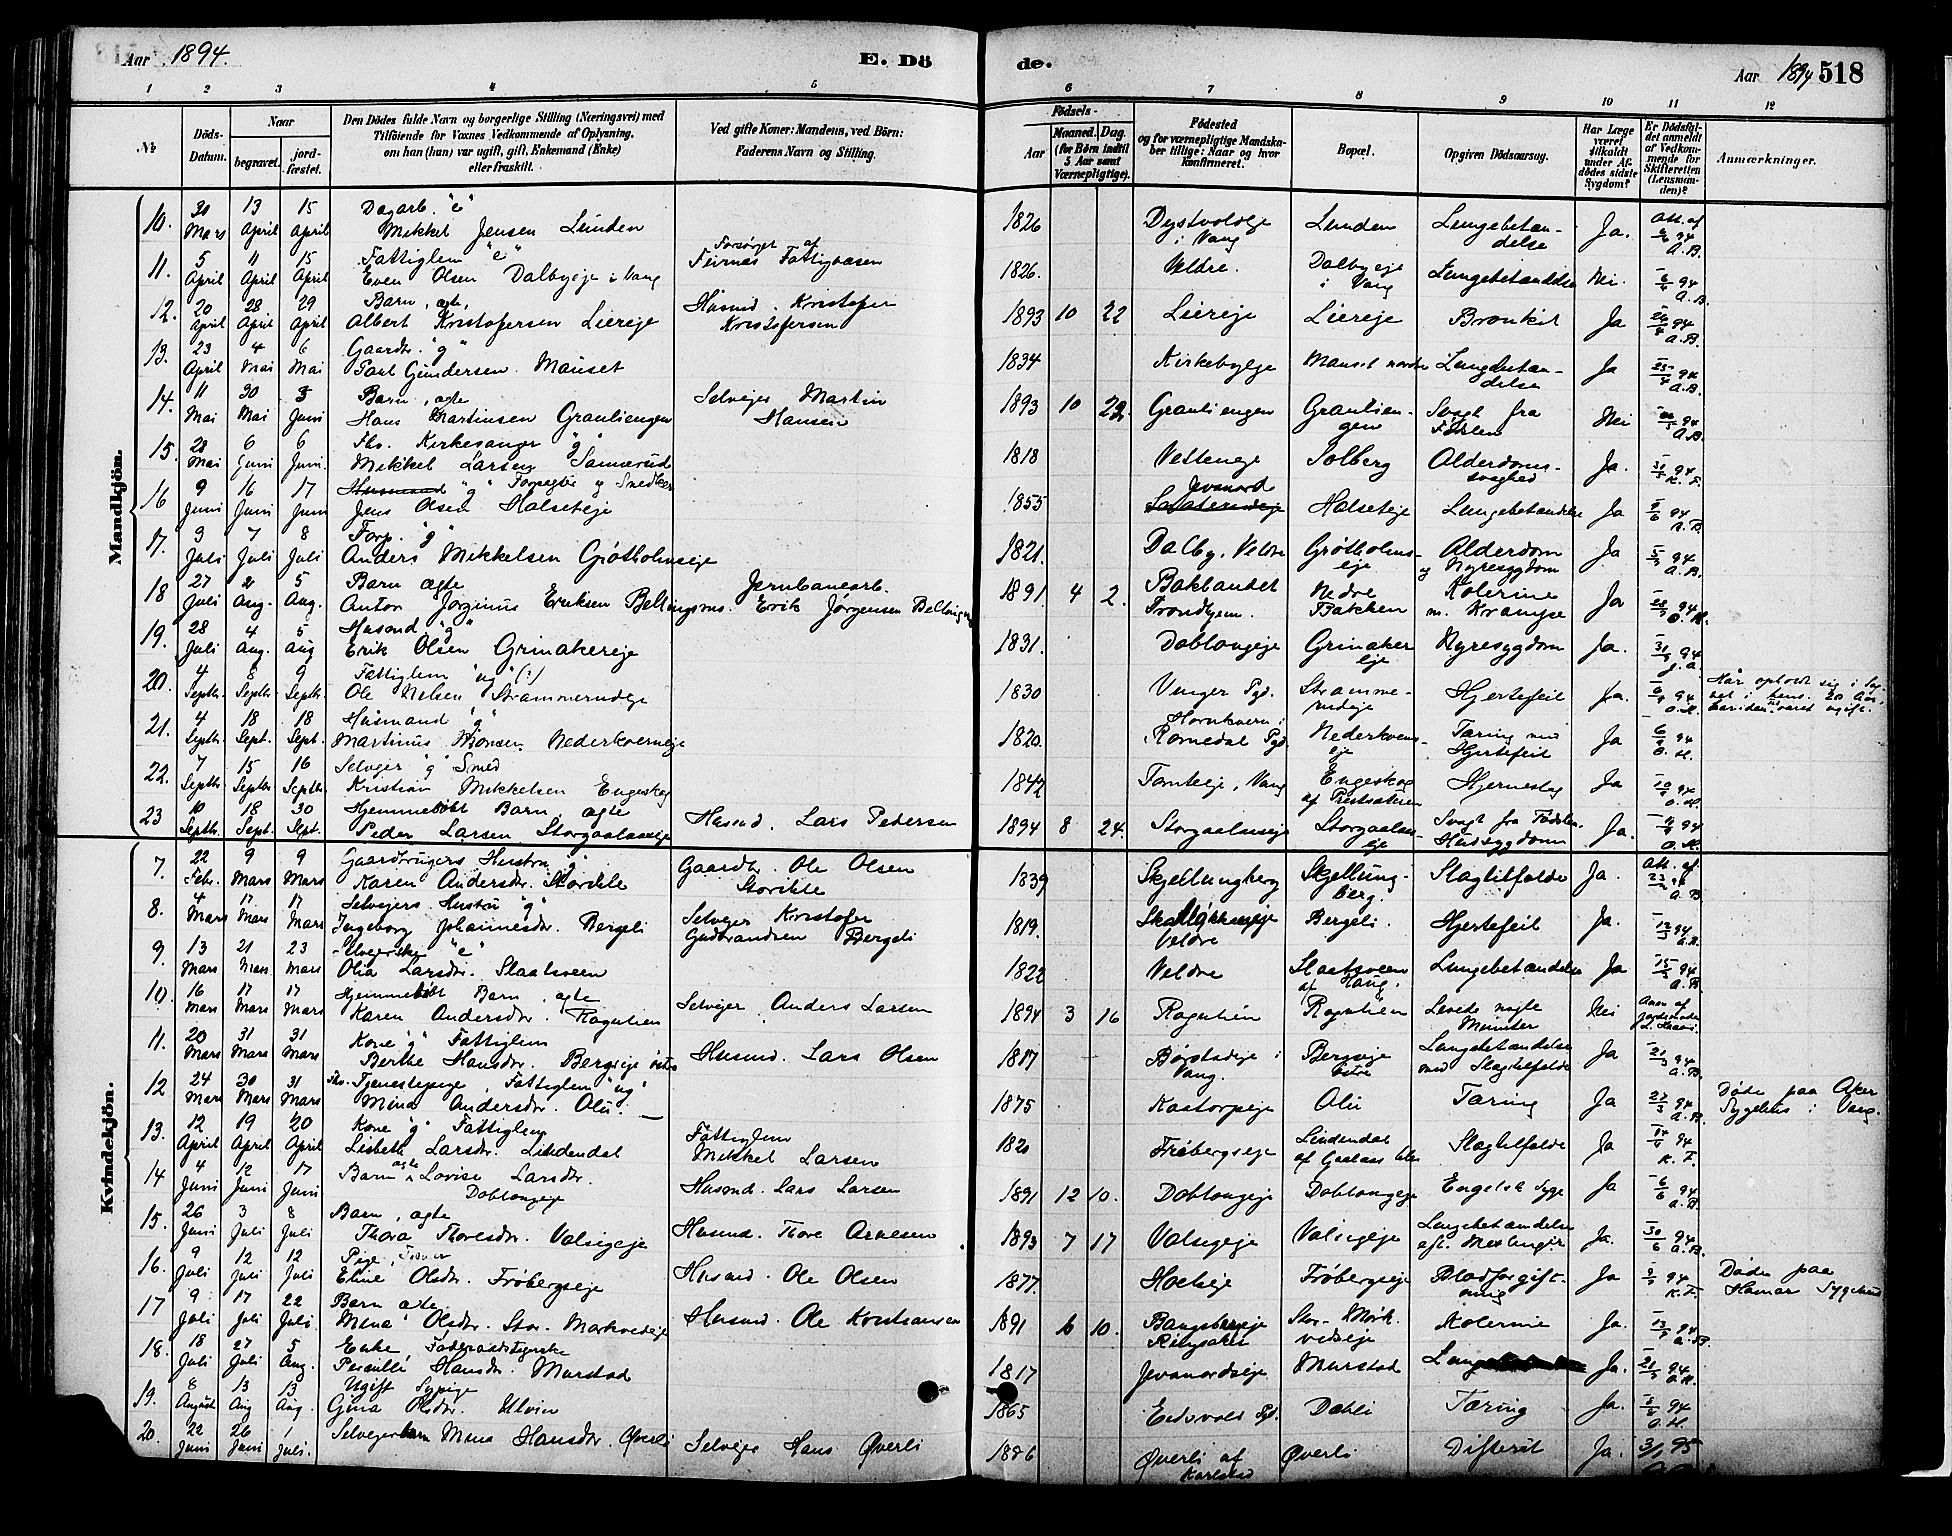 Aar 1894.
E. Dö
de.
Aar 1894 518
1 2 3 4 5 6 7 8 9 10 11 12
No
Döds-Datum.
Naar
begravet.
jordfæstet.
Den Dödes fulde Navn og borgerlige Stilling (Næringsvei) med
Tilföiende for Voxnes Vedkommende af Oplysning,
om han (hun) var ugift, gift, Enkemand (Enke)
eller fraskilt.
Ved gifte Koner: Mandens, ved Börn:
Faderens Navn og Stilling.
Födsels-
Aar
Maaned. Dag.
(for Börn indtil
5 Aar samt
Værnepligtige).
Födested
og for værnepligtige Mandskaber tillige: Naar og hvor
konfirmeret.
Bopæl.
Opgiven Dödsaarsag.
Har Læge
været
tilkaldt
under Afdödes sidste
Sygdom?
Er Dödsfaldet anmeldt
af Vedkommende for
Skifteretten
(Lensmanden)?
Anmærkninger.
Mandkjön.
10. 30 Mars 13 April 15 April Dagarb. "e" Mikkel Jensen Lunden 1826 Dystvoldeje i Vang Lunden Lungebetændelse Ja. Att. af 94 A.B.
11. 5 April 11 April 15 April Fattiglem "e" Even Olsen Dalbyeje i Vang Forsørget af Furnes Fattigvæsen 1826. Veldre. Dalbyeje i Vang Lungebetændelse Nei. 94 A.B.
12. 20 April 28 April 29 April Barn, ægte, Albert Kristofersen Liereje Husmd. Kristofer Kristofersen 1893 10 22 Liereje Liereje Bronkit Ja 24/4 94 A.B.
13. 23 April 4 Mai 6 Mai Gaardbr. "g" Paul Gundersen Mauset 1834 Kirkebyeje Mauset nordre Lungebetændelse Ja 25/4 94 A.B.
14. 11 Mai 30 Mai 3 Juni Barn, ægte Hans Martinsen Grauliengen Selvejer Martin Hansen 1893 10 22. Grauliengen Grauliengen Svagt fra Fødslen Nei 94 A.B.
15. 28 Mai 6 Juni 6 Juni. Fhv. Kirkesanger "g" Mikkel Larsen Sannerud 1818 Vetteneje Solberg Alderdomssvaghed Ja. 31/5 94 K.F.
16 9 Juni 16 Juni 17 Juni "g" Forpagter og Smed Jens Olsen Halseteje 1855 Jevanord Halseteje Lungebetændelse Ja 9/6 94 A.B.
17. 3 Juli 7 Juli 8 Juli Forp. "g" Anders Mikkelsen Gjøtholmseje 1821. Dalby, Veldre Grøtholmseje Alderdom og Nyresygdom Ja 5/7 94 A.B.
18 27 Juli 2 Aug. 5 Aug. Barn ægte Anton Jørginus Eriksen Bellingmo. Jernbanearb. Erik Jørgensen Bellingmo 1891 4 2. Baklandet Trondhjem. Nedre Bakken Kolerine m. Krampe Ja 28/7 94 O.H.
19. 28 Juli 4 Aug. 5 Aug Husmd "g" Erik Olsen Grinakereje 1831. Doblougeje Grinakereje Nyresygdom Ja. 31/7 94
20. 4 Septb. 8 Septb. 9 Septb. Fattiglem "ug" (?) Ole Nelsen Strammerudeje 1830 Vinger Pgd. Strammerudeje Hjertefeil Ja. 94 O.H. Har opholdt sig i i hens. 20 Aar,
21. 4 Septb. 18 Sept. 18 Sept. Husmand "g" Martinus Monsen Nederkverneje 1820. Hornkvern i Romedal Pgd. Nederkverneje Tæring med Hjertefeil Ja 6/9 94 O.H.
22. 7 Septb 15 Septb 16 Septb Selvejer "g" Smed Kristian Mikkelsen Engeskog 1842 Tomteeje, Vang Engeskog af Prestsæteren Hjerneslag Ja 10/9 94 O.H.
23 10 Septb. 18 Sept. 30 Sept. Hjemmedøbt Barn, ægte Peder Larsen Storgaalaaseje Husmd. Lars Pedersen 1894 8 24. Storgaalaaseje Storgaalaaseje Svagt fra Fødslen. Hudsygdom Ja. 94 O.H.
Kvindekjön.
7. 22 Febr. 9 Mars 9 Mars Gaardbrugers Hustru "g" Karen Andersdr. Storihle Gaardbr. Ole Olsen Storihle 1839 Skjellungberg Skjellungberg. Slagtilfælde Ja. Att. af 23/2 94 A.B
8. 4 Mars 17 Mars 17 Mars Selvejers Hustru "g" Ingeborg Johannesdr. Bergeli Selvejer Kristofer Gudbrandsen Bergeli 1819. Veldre Bergeli. Hjertefeil Ja. 94 A.B.
9. 13 Mars 21 Mars 23 Mars Selvejerske "e" Olia Larsdr. Slaatsveen 1822 Veldre Slaatsveen af Haug. Lungebetændelse Ja 15/3 94 A.B.
10. 16 Mars 17 Mars 17 Mars Hjemmedøbt Barn, ægte Karen Andersdr. Rognlien Selvejer Anders Larsen 1894 3 16 Rognlien Rognlien Levede nogle Minuter Nei Anm. af Jordemoder
11. 20 Mars 31 Mars 31 Mars Kone "g" Fattiglem Berthe Hansdr. Bergseje østre Husmd. Lars Olsen 1817 Børstadeje i Vang. Bergseje østre Lungebetændelse med Slagtilfælde Ja 21/3 94 A.B.
12 24 Mars 30 Mars 31 Mars Fhv. Tjenestepige, Fattiglem "ug" Mina Andersdr. Olii. 1875 Kastorpeje Olii Tæring Ja 27/3 94 A.B. Døde paa Aker Sygehus i Vang.
13. 12 April 19 April 20 April Kone "g" Fattiglem Lisbeth Larsdr. Lindendal Fattiglem Mikkel Larsen 1820 Frøbergseje Lindendal af Slagtilfælde Ja 14/4 94 K.F.
14 4 Juni 12 Juni 17 Juni Barn ægte Lovise Larsdr. Doblougeje Husmd. Lars Larsen 1891 12 10. Doblougeje Doblougeje Engelsk Syge Ja 6/6 94 A.B.
15. 26 Juni 3 Juli 8 Juli Barn, ægte Thora Thoresdr. Valsigeje Husmd. Thore Arnesen 1893 7 17 Valsigeje Valsigeje Lungebetændelse eft. Meslinger Ja. 30/6 94 A.B.
16. 9 Juli 12 Juli 12 Juli Pige, Eline Olsdr. Frøbergseje Husmd. Ole Olsen 1877. Hoelseje Frøbergseje Blodforgiftning Ja 94 K.F. Døde paa Hamar Sygehus
17 9 Juli 17 Juli 22 Juli Barn ægte Mina Olsdr. Stor-Markvedeje Husmd. Ole Kristiansen 1891 6 10. Bangsbergeje Ringsaker Stor-Mørkvedseje Kolerine Ja. 13/7 94 A.B.
18. 18 Juli 27 Juli 5 Aug. Enke, Fødraadstyrske Pernille Hansdr. Murstad 1817 Jevanordseje Murstad Ja. 94 A.H.
19. 8 August 13 Aug 13 Aug. Ugift Sypige Gina Olsdr. Ulvin 1865 Eidsvold Pgd. Dæhli Tæring Ja. 94 O.H.
20. 22 Juni 26 Juni 1 Juli. Selvejerbarn Mina Hansdr. Øverli Selvejer Hans Øverli 1886 Øverli af Karlstad Øverli Difterit Ja. 3/1 95